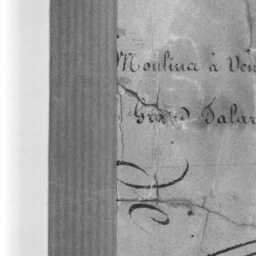 Moulina à Ven
Grand Salar